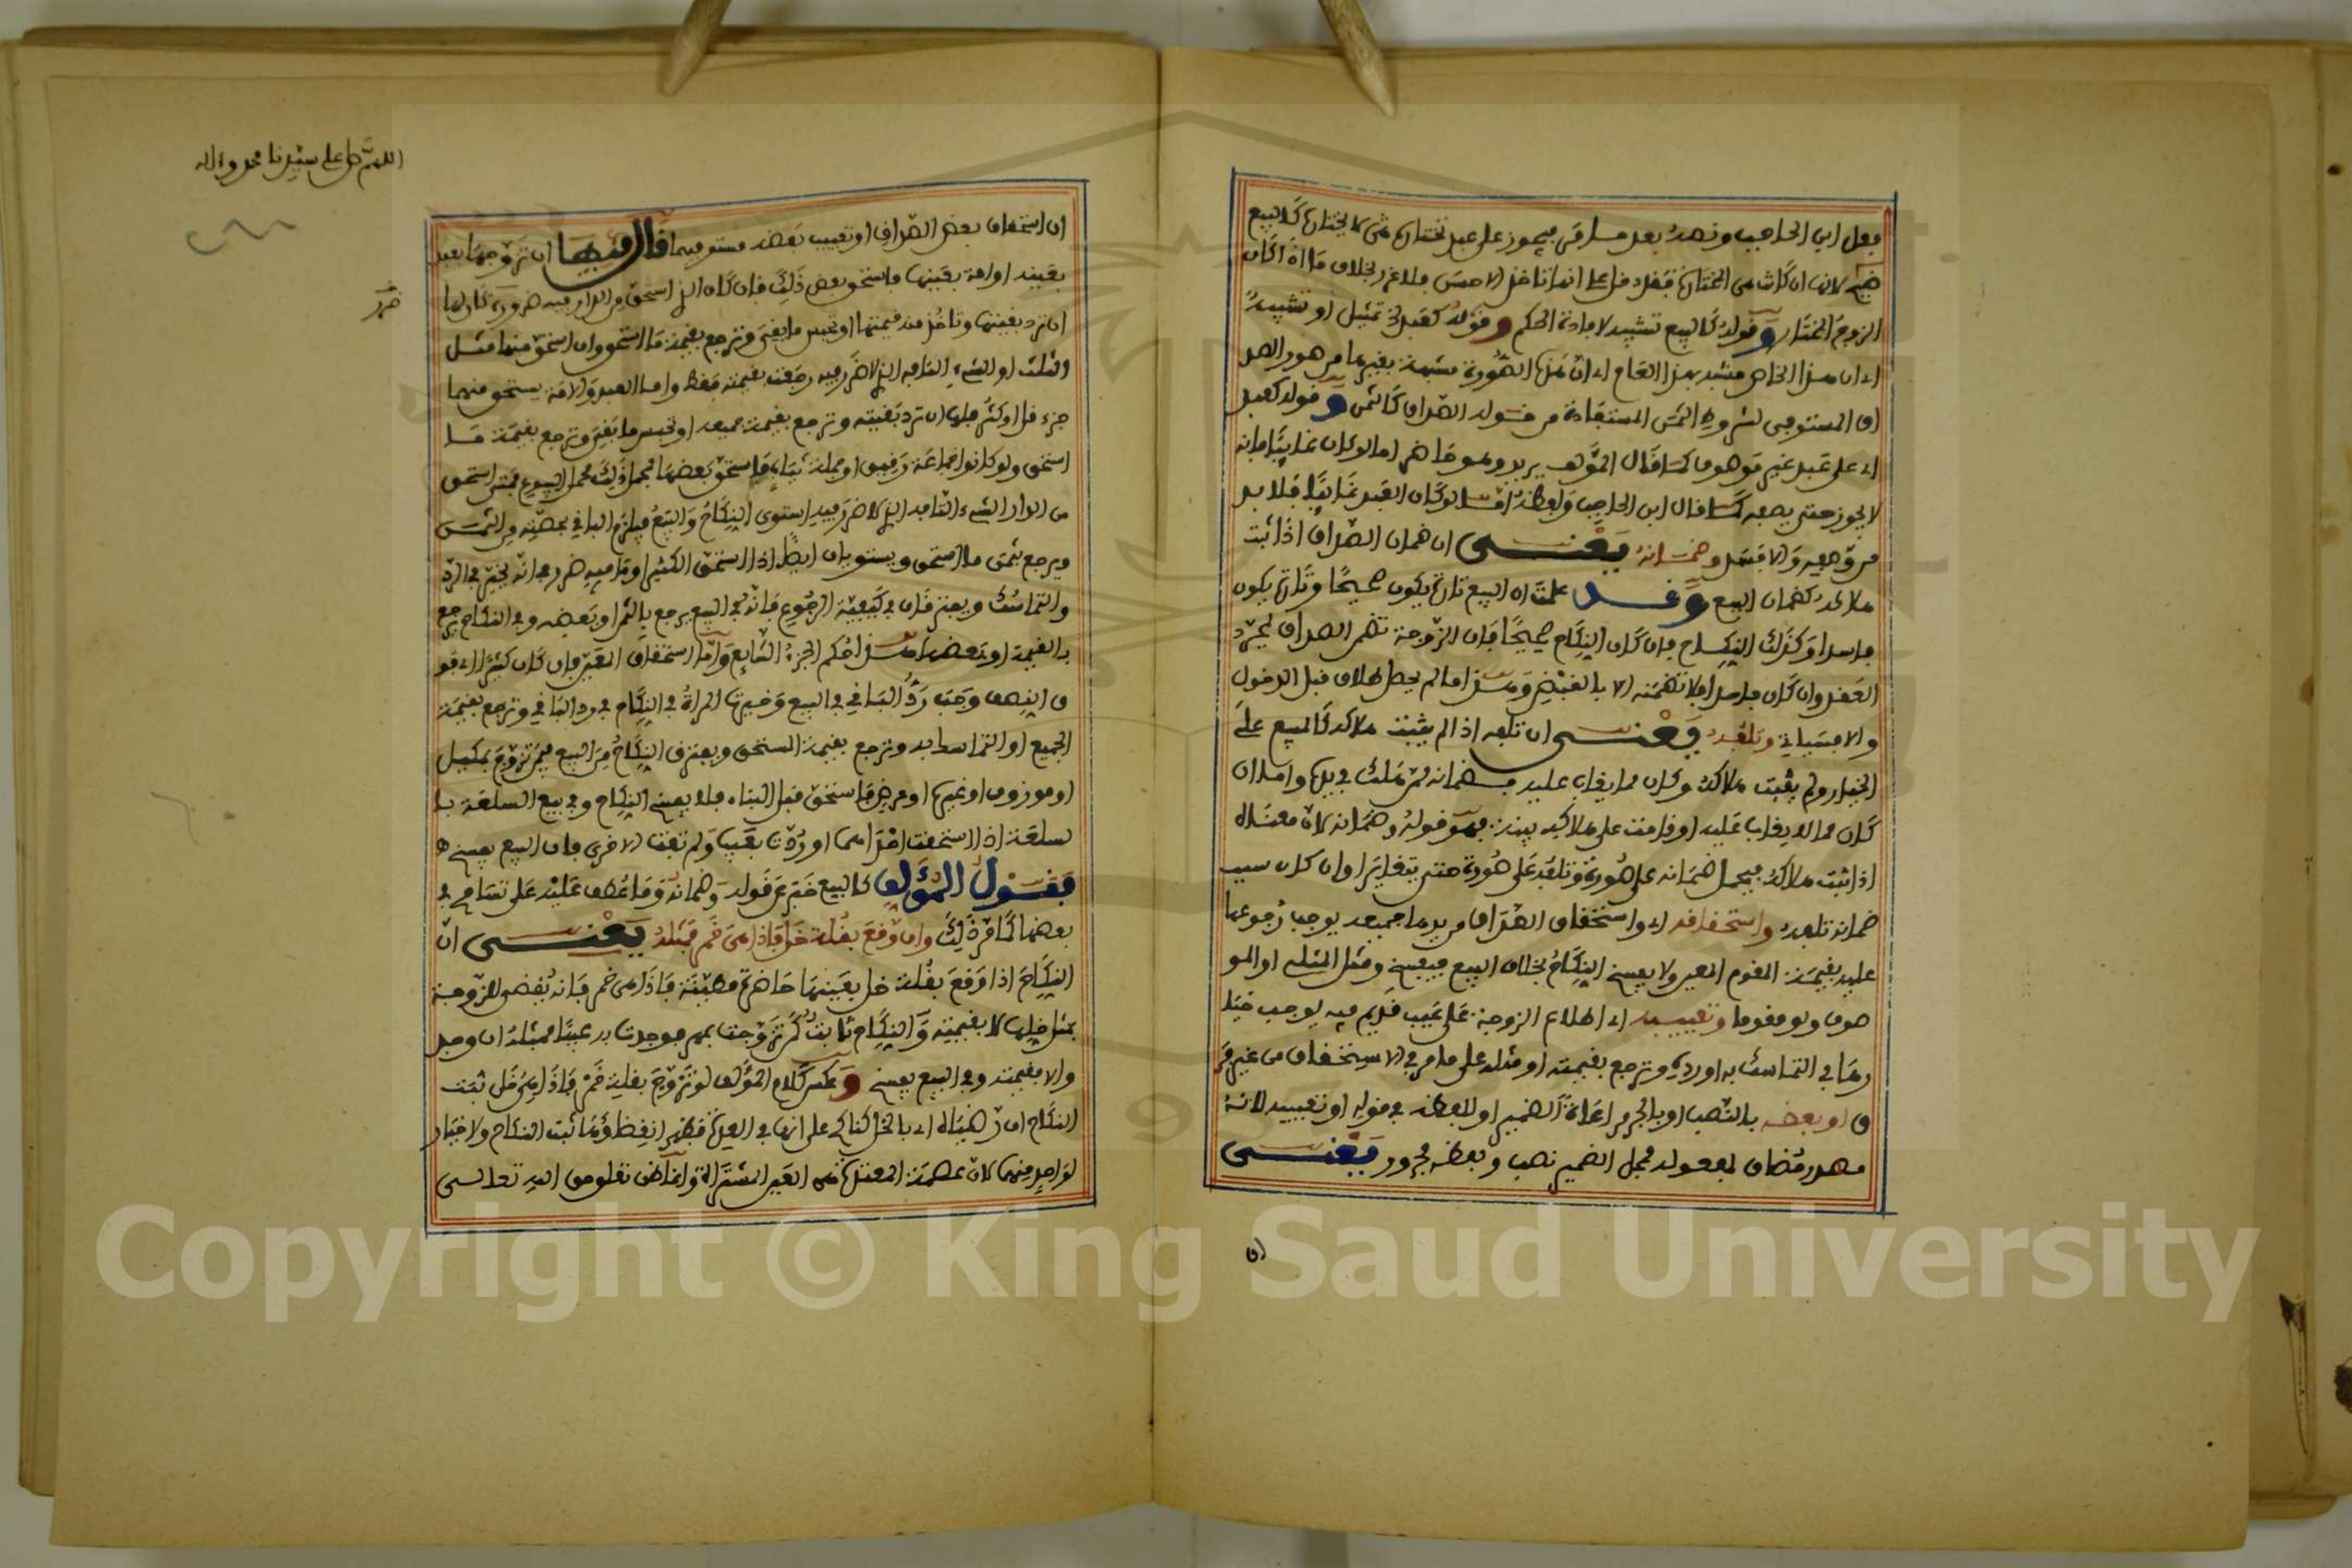 فعل ابن الحاجب ونصه بعد ما مر فيجوز على عبد تختاره هي لا يختاره كالبيع
فيه لانها ان كانت هي المختارة فقد دخل على انها تاخذ الاحسن فلا غرر بخلاف ما اذا كان
الزوج المختار وقوله كالبيع تشبيه لافادة الحكم وقوله كعبد تمثيل او تشبيه
اي ان هذا الخاص مشبه بهذا العام اي ان هذه الصورة مشبهة بغيرها من صور الصد
اق المستوفي لشروط الثمن المستفادة من قوله الصداق كالثمن وقوله كعبد
اي على عبد غير موصوف كما قال المؤلف يريد وهو حاضر اما لو كان غائبا فانه
لا يجوز حتى يصفه كما قال ابن الحاجب ولفظه اما لو كان العبد غائبا فلا بد
من وصفه والا فسد وضمانه يعني ان ضمان الصداق اذا ثبت
هلاكه كضمان البيع وقد علمت ان البيع تارة يكون صحيحا وتارة يكون
فاسدا وكذلك النكاح فان كان النكاح صحيحا فان الزوجة تضمن الصداق بمجرد
العقد وان كان فاسدا فلا تضمنه الا بالقبض وهذا ما لم يحصل طلاق قبل الدخول
والا فسياتي وتلفه يعني ان تلفه اذا لم يثبت هلاكه كالمبيع على
الخيار ولم يثبت هلاكه وكان مما يغاب عليه فضمانه ممن هلك في يده واما ان
كان مما لا يغاب عليه او قامت على هلاكه بينة فهو قوله وضمانه لان معناه
اذا ثبت هلاكه فيحمل ضمانه على صورة وتلفه على صورة حتى يتغايرا وان كان سبب
ضمانه تلفه واستحقاقه اي واستحقاق الصداق من يدها جميعه يوجب رجوعها
عليه بقيمة المقوم المعين ولا يفسخ النكاح بخلاف البيع فيفسخ ومثل المثلي او المو
صوف ولو مقوما وتعييبه اي اطلاع الزوجة على عيب قديم فيه يوجب خيا
رها في التماسك به او رده وترجع بقيمته او مثله على ما مر في الاستحقاق من غير فر
ق او بعضه بالنصب او بالجر مراعاة الضمير او للفظه في قوله او تعييبه لانه
مصدر مضاف لمفعوله فمحل الضمير نصب ولفظه مجرور يعني
ان
اللهم صل على سيدنا محمد واله
ان استحقاق بعض الصداق او تعييب بعضه مستو فيهما قال فيها ان تزوجها بعبد
بعينه او امة بعينها فاستحق بعض ذلك فان كان الذي استحق من الدار فيه ضرر كان لها
ان ترد بقيتها وتاخذ منه قيمتها او تحبس ما بقي وترجع بقيمة ما استحق وان استحق منها مثل
الثلث او الشيء التافه الذي لا ضرر فيه رجعت بقيمته فقط واما العبد والامة يستحق منهما
جزء قل او كثر فلها ان ترد بقيته وترجع بقيمة جميعه او تحبس ما بقي وترجع بقيمة ما
استحق ولو كانوا جماعة رقيق او جملة ثياب فاستحق بعضها فمحمل ذلك محمل البيوع فمتى استحق
من الدار الشيء التافه الذي لا ضرر فيه استوى النكاح والبيع فيلزم الباقي بحصته من الثمن
ويرجع بثمن ما استحق ويستويان ايضا اذا استحق الكثير او ما فيه ضرر في انه يخير في الرد
والتماسك ويفترقان في كيفية الرجوع فانه في البيع يرجع بالثمن او بعضه وفي النكاح يرجع
بالقيمة او بعضها هذا حكم الجزء الشايع واما استحقاق المعين فان كان كثيرا اي فو
ق النصف وجب رد الباقي في البيع وخيرت المراة في النكاح في رد الباقي وترجع بقيمة
الجميع او التماسك به وترجع بقيمة المستحق ويفترق النكاح من البيع فيمن تزوج بمكيل
او موزون او غيره او عرض فاستحق قبل البناء فلا يفسخ النكاح وفي بيع السلعة بـ
سلعة اذا استحقت احداهما او ردت بعيب ولم تفت الاخرى فان البيع يفسخ
فقول المؤلف كالبيع خبر عن قوله وضمانه وما عطف عليه على تسامح في
بعضها كما مر ذلك وان وقع بقلة خل فاذا هي خمر فمثله يعني ان
النكاح اذا وقع بقلة خل بعينها حاضرة مطينة فاذا هي خمر فانه يقضى للزوجة
بمثل خلها لا بقيمته والنكاح ثابت كمن تزوجت بمهر فوجدت به عيبا فمثله ان وجد
والا فقيمته وفي البيع يفسخ وعكس كلام المؤلف لو تزوج بقلة خمر فاذا هي خل ثبت
النكاح ان رضياه اي بالخل كناكح على انها في العدة فظهر انقضاؤها ثبت النكاح ولا خيار
لواحد منهما لان عصمة المعتدة هي العين المشتراة وانما ظن تعلق حق الله تعالى